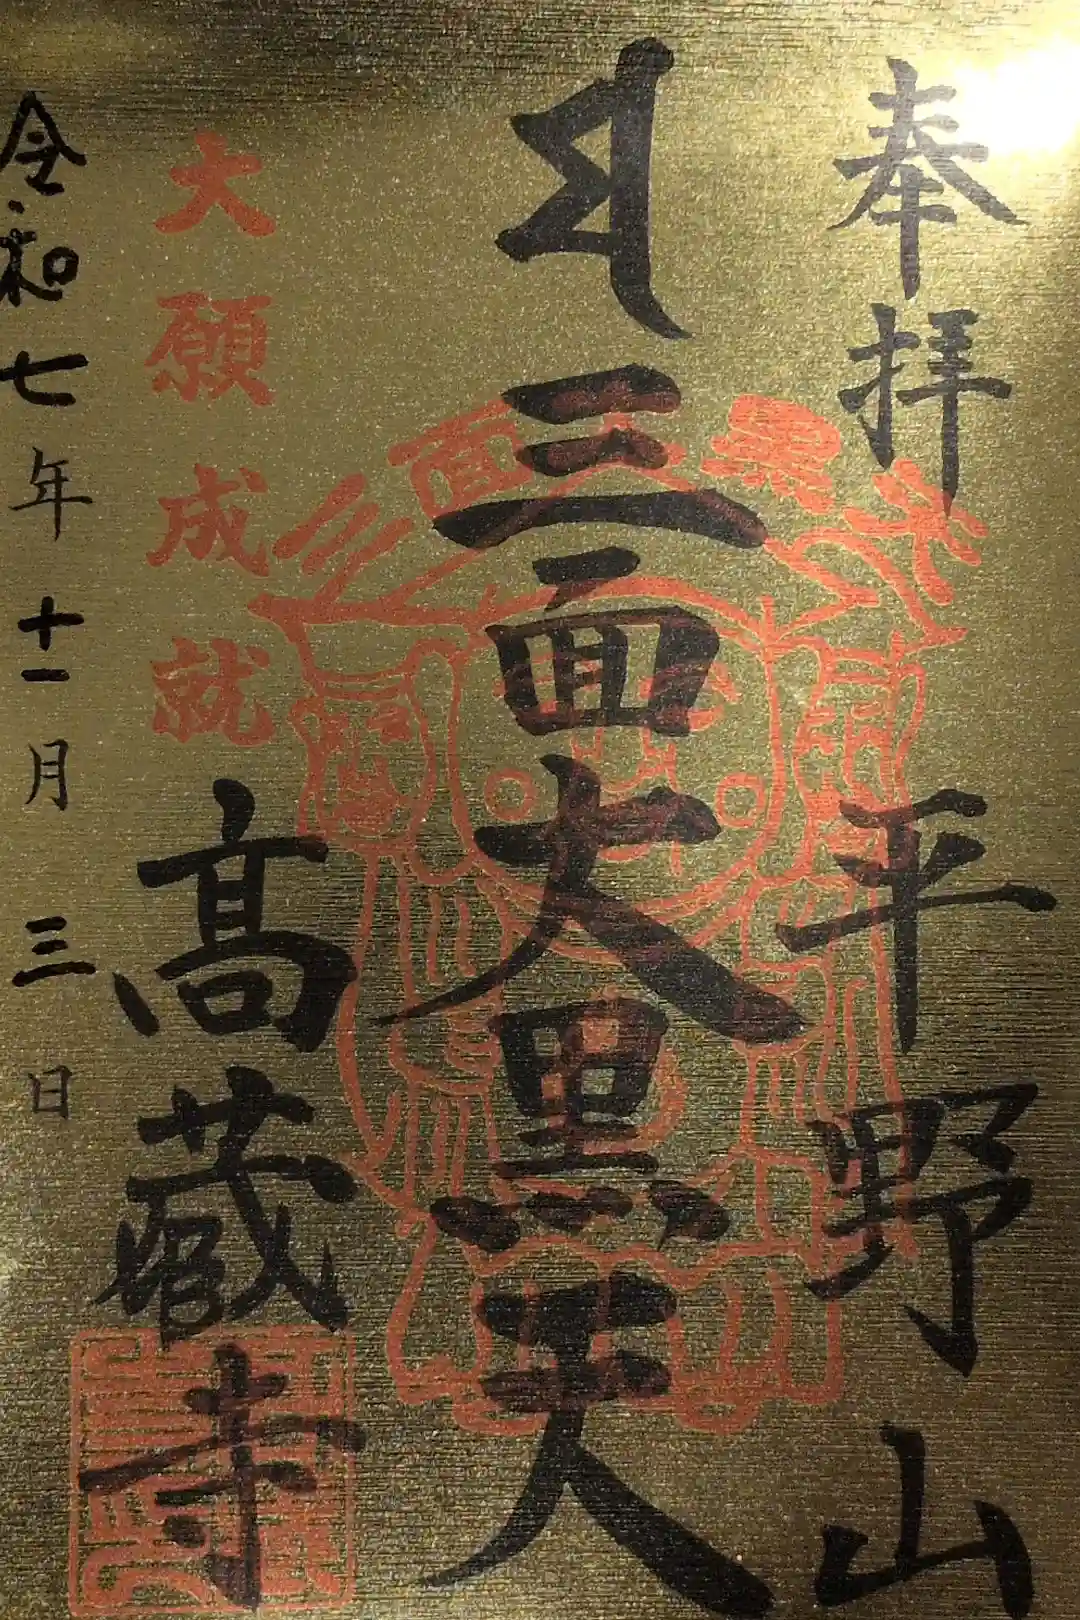 奉拝
平野山
三面大黒天
三面大黒天
大願成就
髙蔵寺
令和七年十一月三日